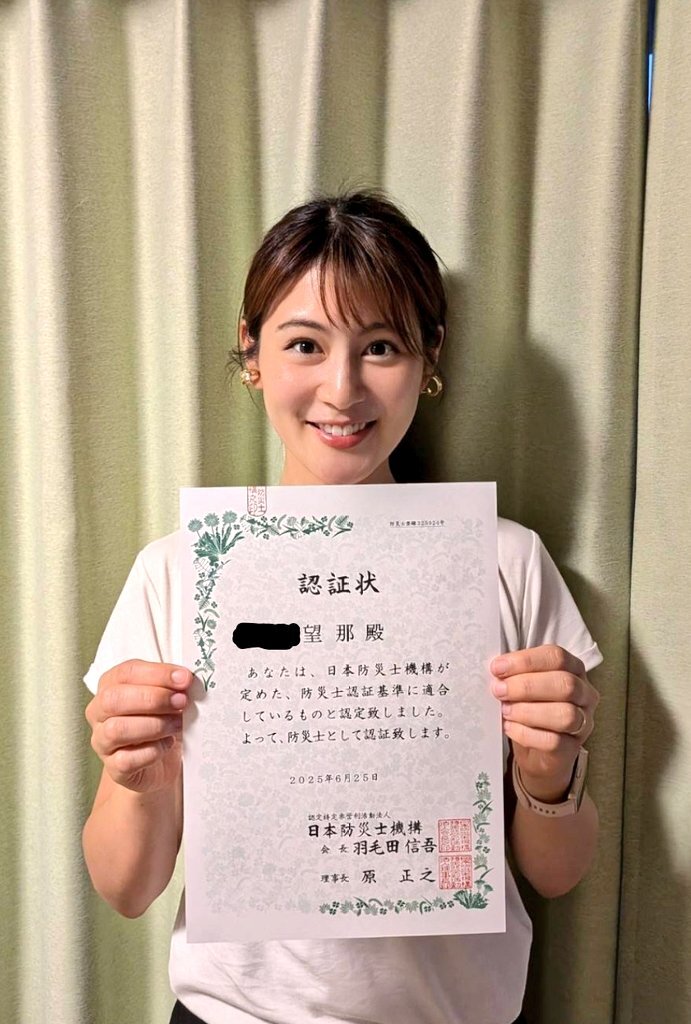 防災士登録325924号
認証状
望那殿
あなたは、日本防災士機構が
定めた、防災士認証基準に適合
しているものと認定致しました。
よって、防災士として認証致します。
2025年6月25日
認定特定非営利活動法人
日本防災士機構
会長 羽毛田信吾
理事長 原 正之